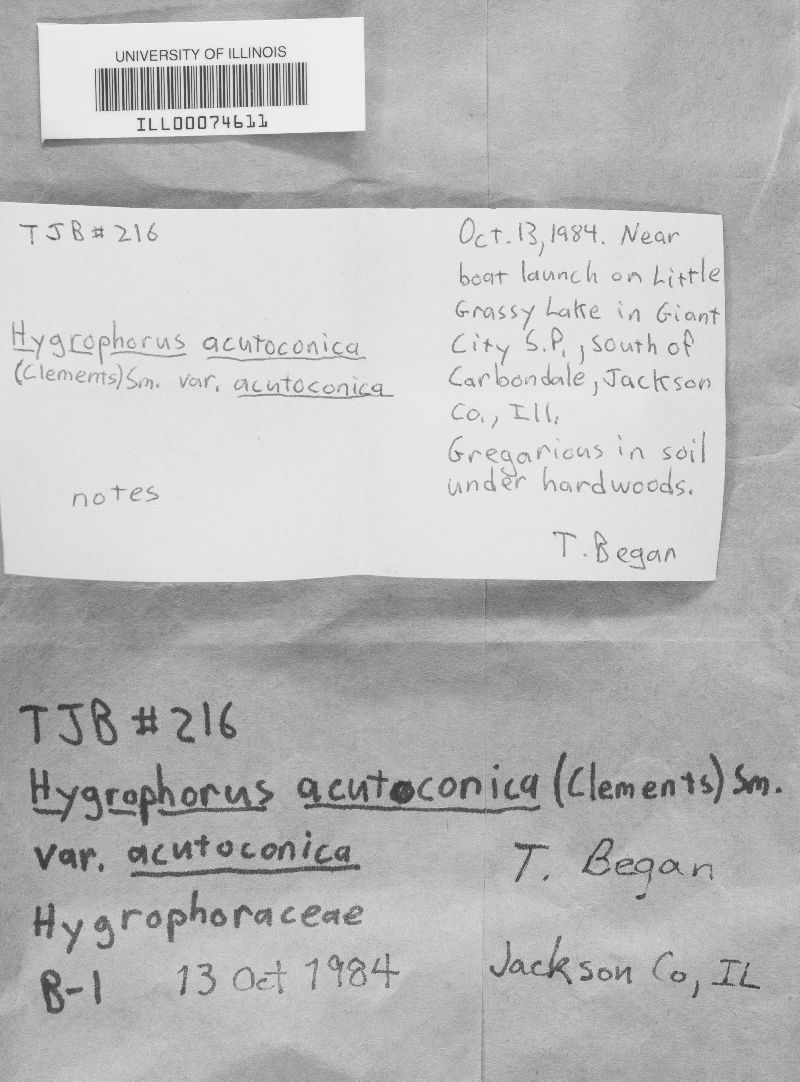 UNIVERSITY OF ILLINOIS
ILL00074611
TJB # 216
Hygrophorus acutoconica
(Clements) Sm. var. acutoconica
notes
Oct. 13, 1984. Near
boat launch on Little
Grassy Lake in Giant
City S.P., south of
Carbondale, Jackson
Co., Ill.
Gregarious in soil
under hardwoods.
T. Began
TJB # 216
Hygrophorus acutoconica (Clements) Sm.
var. acutoconica
T. Began
Hygrophoraceae
B-1 13 Oct 1984
Jackson Co, IL